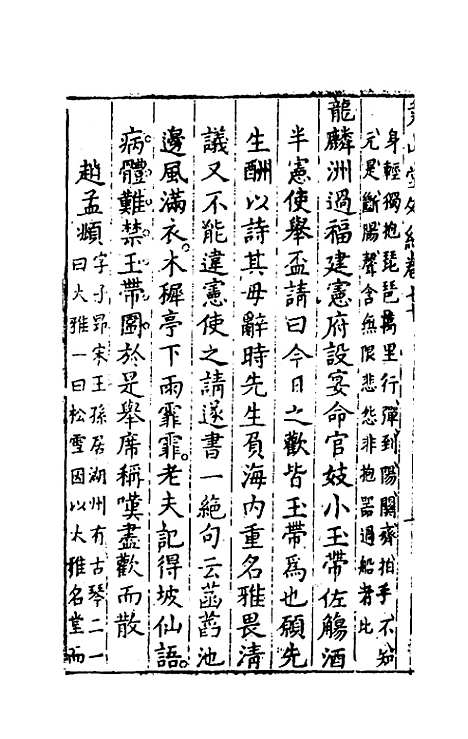 堯山堂外紀卷七十
身輕獨抱琵琶萬里行彈到陽關齊拍手不知
元是斷腸聲含無限悲怨非抱器過船者比
龍麟洲過福建憲府設宴命官妓小玉帶佐觴酒
半憲使舉盃請曰今日之歡皆玉帶爲也願先
生酬以詩其毋辭時先生負海内重名雅畏清
議又不能違憲使之請遂書一絶句云菡萏池
邊風滿衣木樨亭下雨霏霏老夫記得坡仙語
病體難禁玉帶圍於是舉席稱嘆盡歡而散
趙孟頫字子昂宋王孫居湖州有古琴二一
曰大雅一曰松雪因以大雅名堂而